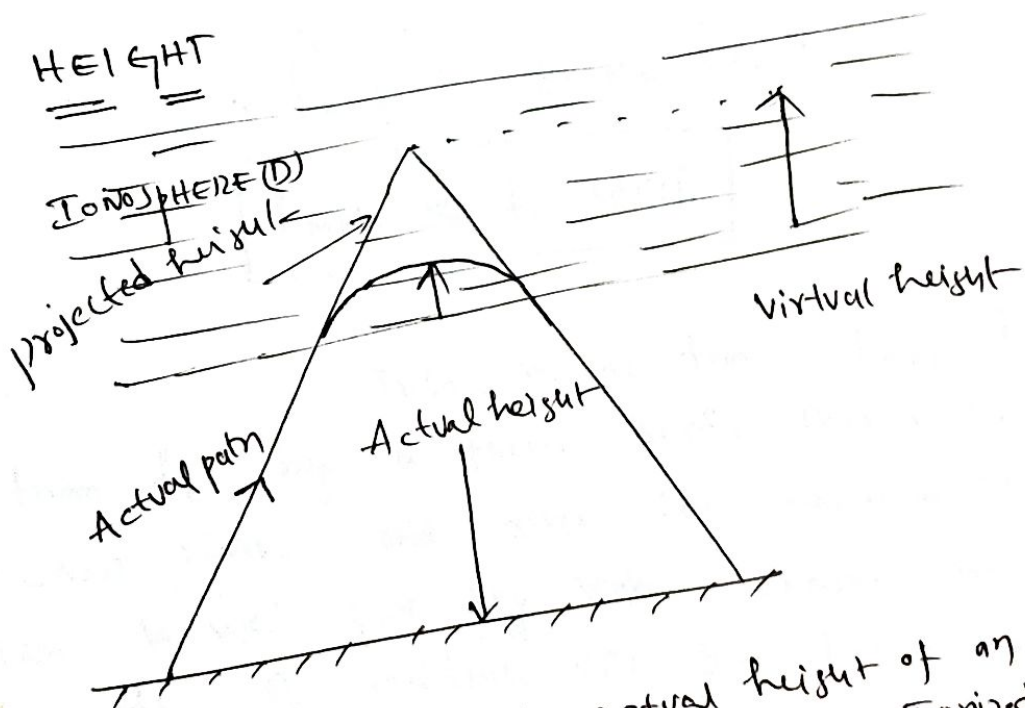 HEIGHT
IONOSPHERE (D)
projected height
virtual height
Actual height
Actual path
height of an